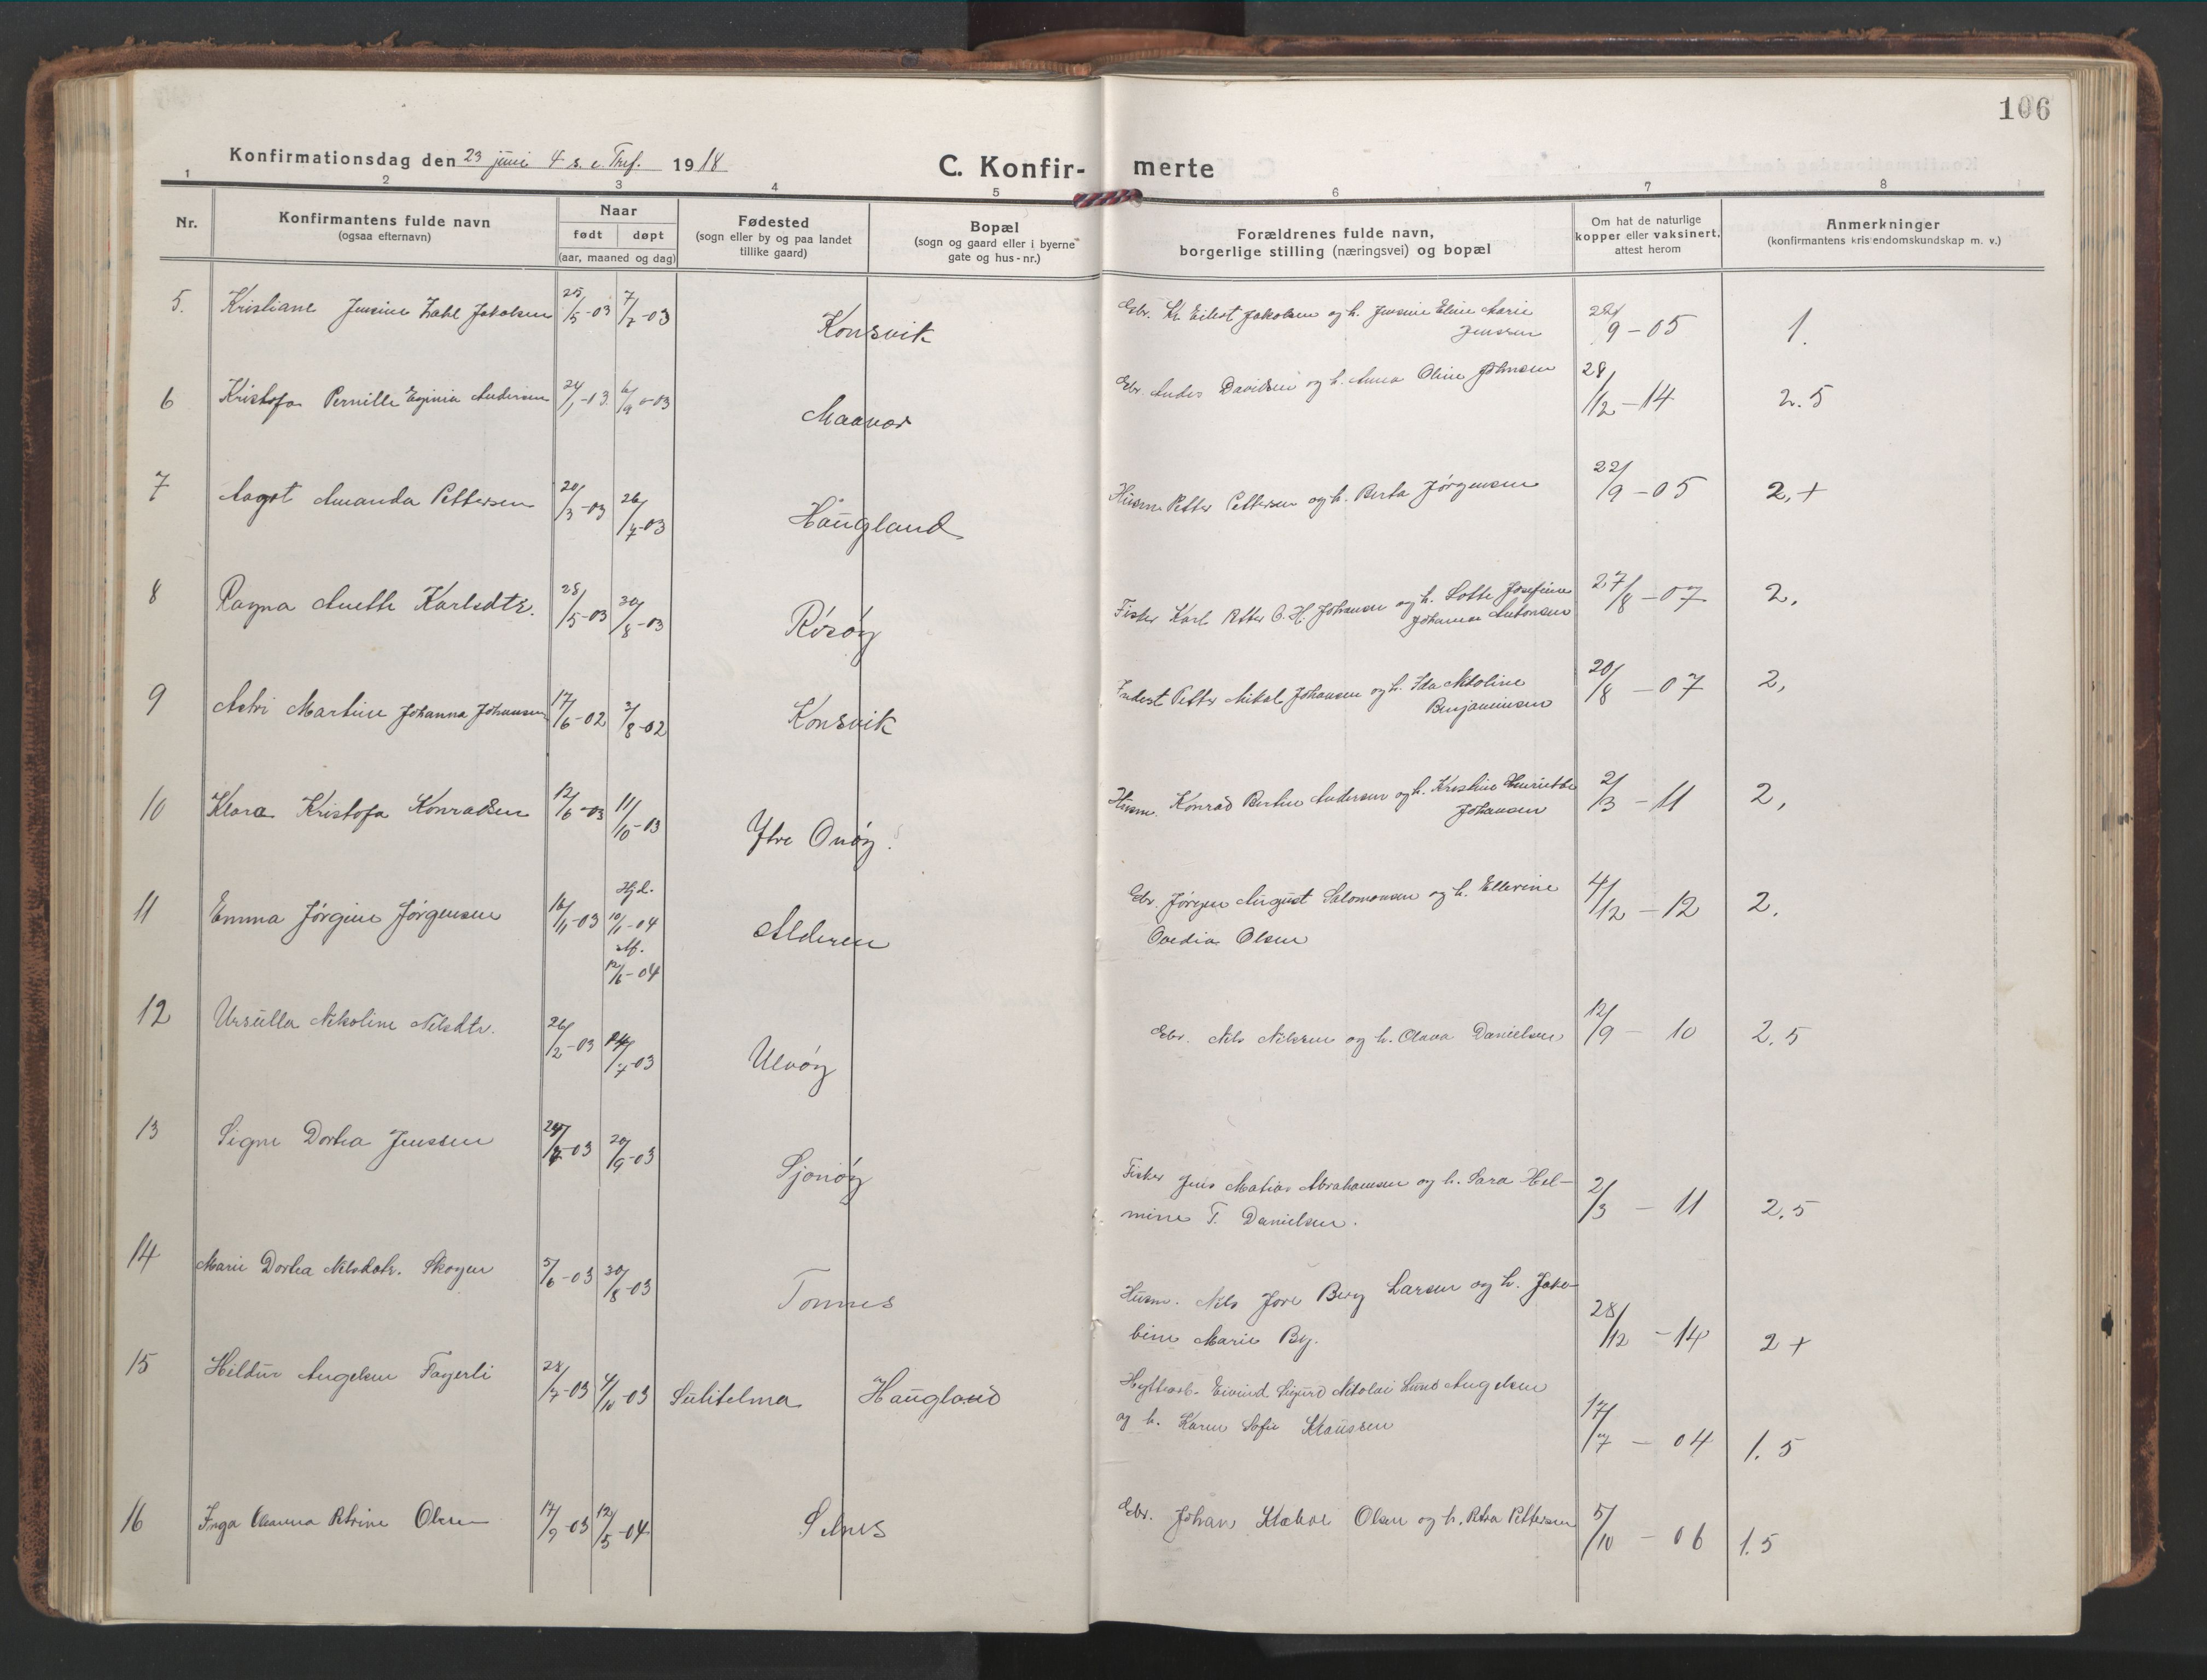 106
Konfirmationsdag den 23 juni 4 s. e. Tref. 1918
C. Konfir- merte
1 2 3 4 5 6 7 8
Nr.
Konfirmantens fulde navn
(ogsaa efternavn)
Naar
født døpt
(aar, maaned og dag)
Fødested
(sogn eller by og paa landet
tillike gaard)
Bopæl
(sogn og gaard eller i byerne
gate og hus-nr.)
Forældrenes fulde navn,
borgerlige stilling (næringsvei) og bopæl
Om hat de naturlige
kopper eller vaksinert,
attest herom
Anmerkninger
(konfirmantens kristendomskundskap m. v.)
5. Kristiane Jensine Zahl Jakobsen 25/5-03 7/7-03 Konsvik Gbr. Kr. Eilert Jakobsen og h. Jensine Eline Marie
Jenssen 9-05 1.
6 Kristofa Pernille Andersen 24/1-03 6/9-03 Maanes Gbr. Anders Davidsen og h. Anna Oline Johnsen 28/12-14 2.5
7 Aagot Amanda Pettersen 20/3-03 26/7-03 Haugland Husm. Petter Pettersen og h. Berta Jørgensen 22/9-05 2,+
8 Ragna Anette Karlsdtr. 28/5-03 30/8-03 Rósøy Fisker Karl Petter O. H. Johansen og h. Lotte Josefine
Johanna Antonsen 27/8-07 2,
9 Astri Martine Johanna Johansen 17/6-02 3/8-02 Konsvik Inderst Petter Nikolai Johansen og h. Ida Nikoline
Benjaminsen 20/8-07 2,
10 Klara Kristofa Konradsen 12/6-03 11/10-03 Ytre Onøy. Husm. Konrad Bertin Andersen og h. Kristine Henriette
Johansen 2/3-11 2,
Hjd.
11 Emma Jørgine Jørgensen 16/11-03 10/1-04 Alderen Gbr. Jørgen August Salomonsen og h. Ellevine 4/12-12 2.
stf.
12/6-04 Ovedia Olsen
12 Ursulla Nikoline Nilsdtr. 26/2-03 /7-03 Ulvøy Gbr. Nils Nilsen og h. Olava Danielsen 12/9-10 2.5
13 Signe Dortea Jenssen 20/9-03 Sjonøy Fisker Jens Matias Abrahamsen og h. Sara Hel-
mine T. Danielsen. 2/3-11 2.5
14 Marie Dortea Nilsdatr. Skogen 5/6-03 30/8-03 Tonnes Husm. Nils Jore Berg Larsen og h. Jako-
bine Marie By. 28/12-14 2+
15 Hildur Angelsen Fagerli 28/7-03 4/10-03 Sulitelma Haugland Hyttearb. Eivind Sigurd Nikolai Lund Angelsen
og h. Karen Sofie Klaussen 17/7-04 1.5
16 Inga Petrine Olsen 17/9-03 12/5-04 Selnes Gbr. Johan Klæboe Olsen og h. Petra Pettersen 5/10-06 1.5